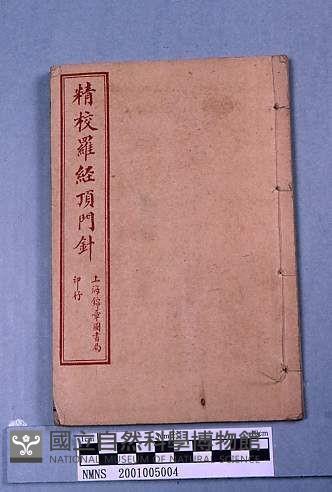 精校羅經頂門針
上海錦章圖書局
印行
國立自然科學博物館
NATIONAL MUSEUM OF NATURAL SCIENCE
cm
NMNS 2001005004